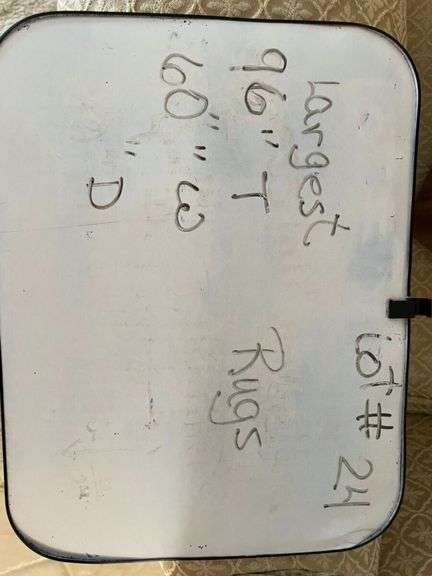 Lot # 24
Largest
96" T Rugs
60" " W
" D